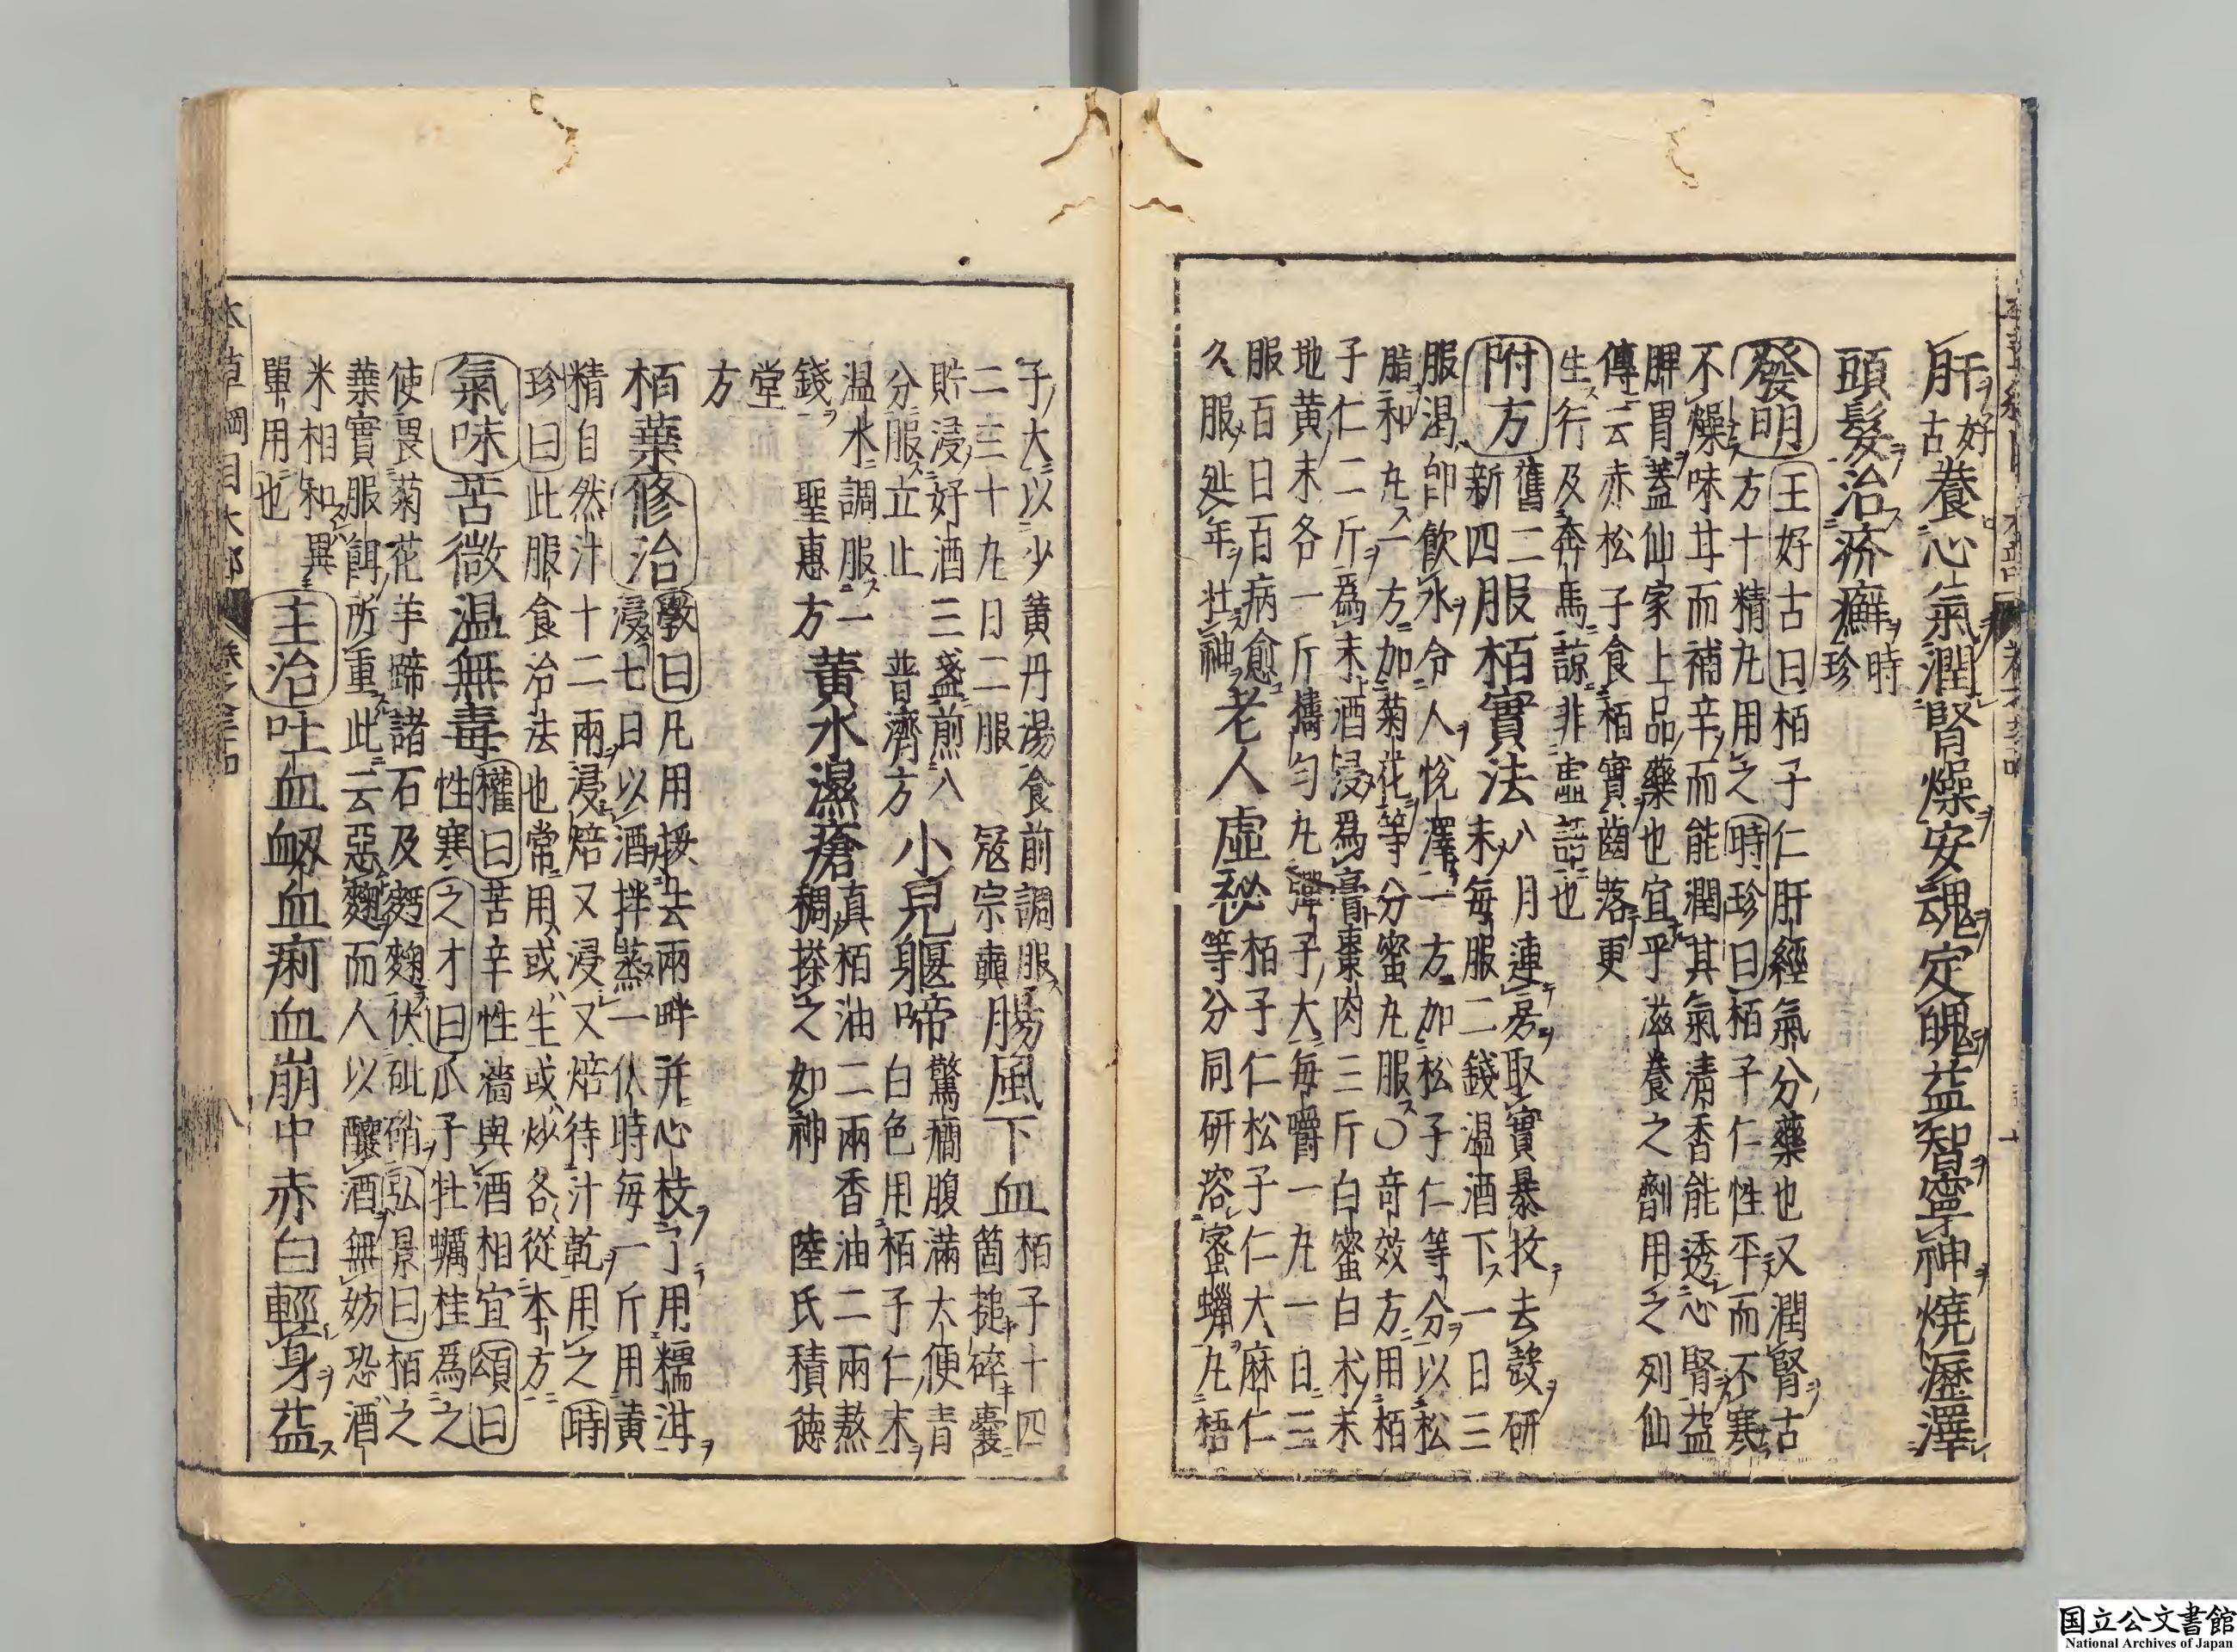 肝好古養心氣潤腎燥安魂定魄益智寧神燒瀝澤
頭髮治疥癬時珍
發明王好古曰栢子仁肝經氣分藥也又潤腎古
方十精丸用之時珍曰栢子仁性平而不寒
不燥味甘而補辛而能潤其氣清香能透心腎益
脾胃蓋仙家上品藥也宜乎滋養之劑用之列仙
傳云赤松子食栢實齒落更
生行及奔馬諒非虛語也
附方舊二新四服栢實法八月連房取實暴收去殼研
末每服二錢温酒下一日三
服渴卽飲水令人悅澤一方加松子仁等分以松
脂和丸一方加菊花等分蜜丸服○奇效方用栢
子仁二斤爲末酒浸爲膏棗肉三斤白蜜白朮末
地黃末各一斤擣勻丸彈子大每嚼一丸一日三
服百日百病愈
久服延年壯神老人虛秘栢子仁松子仁大麻仁
等分同研溶蜜蠟丸梧
子大以少黃丹湯食前調服
二三十丸日二服 寇宗奭腸風下血栢子十四
箇搥碎囊
貯浸好酒三盞煎八
分服立止 普濟方小兒軀啼驚癇腹滿大便青
白色用栢子仁末
温水調服一
錢 聖惠方黃水濕瘡真栢油二兩香油二兩熬
稠搽之如神 陸氏積德
堂
方
栢葉修治斅曰凡用揉去兩畔并心枝了用糯泔
浸七日以酒拌蒸一伏時每一斤用黃
精自然汁十二兩浸焙又浸又焙待汁乾用之時
珍曰此服食治法也常用或生或炒各從本方
氣味苦微温無毒權曰苦辛性濇與酒相宜頌曰
性寒之才曰瓜子牡蠣桂爲之
使畏菊花羊蹄諸石及麪麴伏砒硝弘景曰栢之
葉實服餌所重此云惡麴而人以釀酒無妨恐酒
米相和異
單用也主治吐血衂血痢血崩中赤白輕身益
国立公文書館
National Archives of Japan